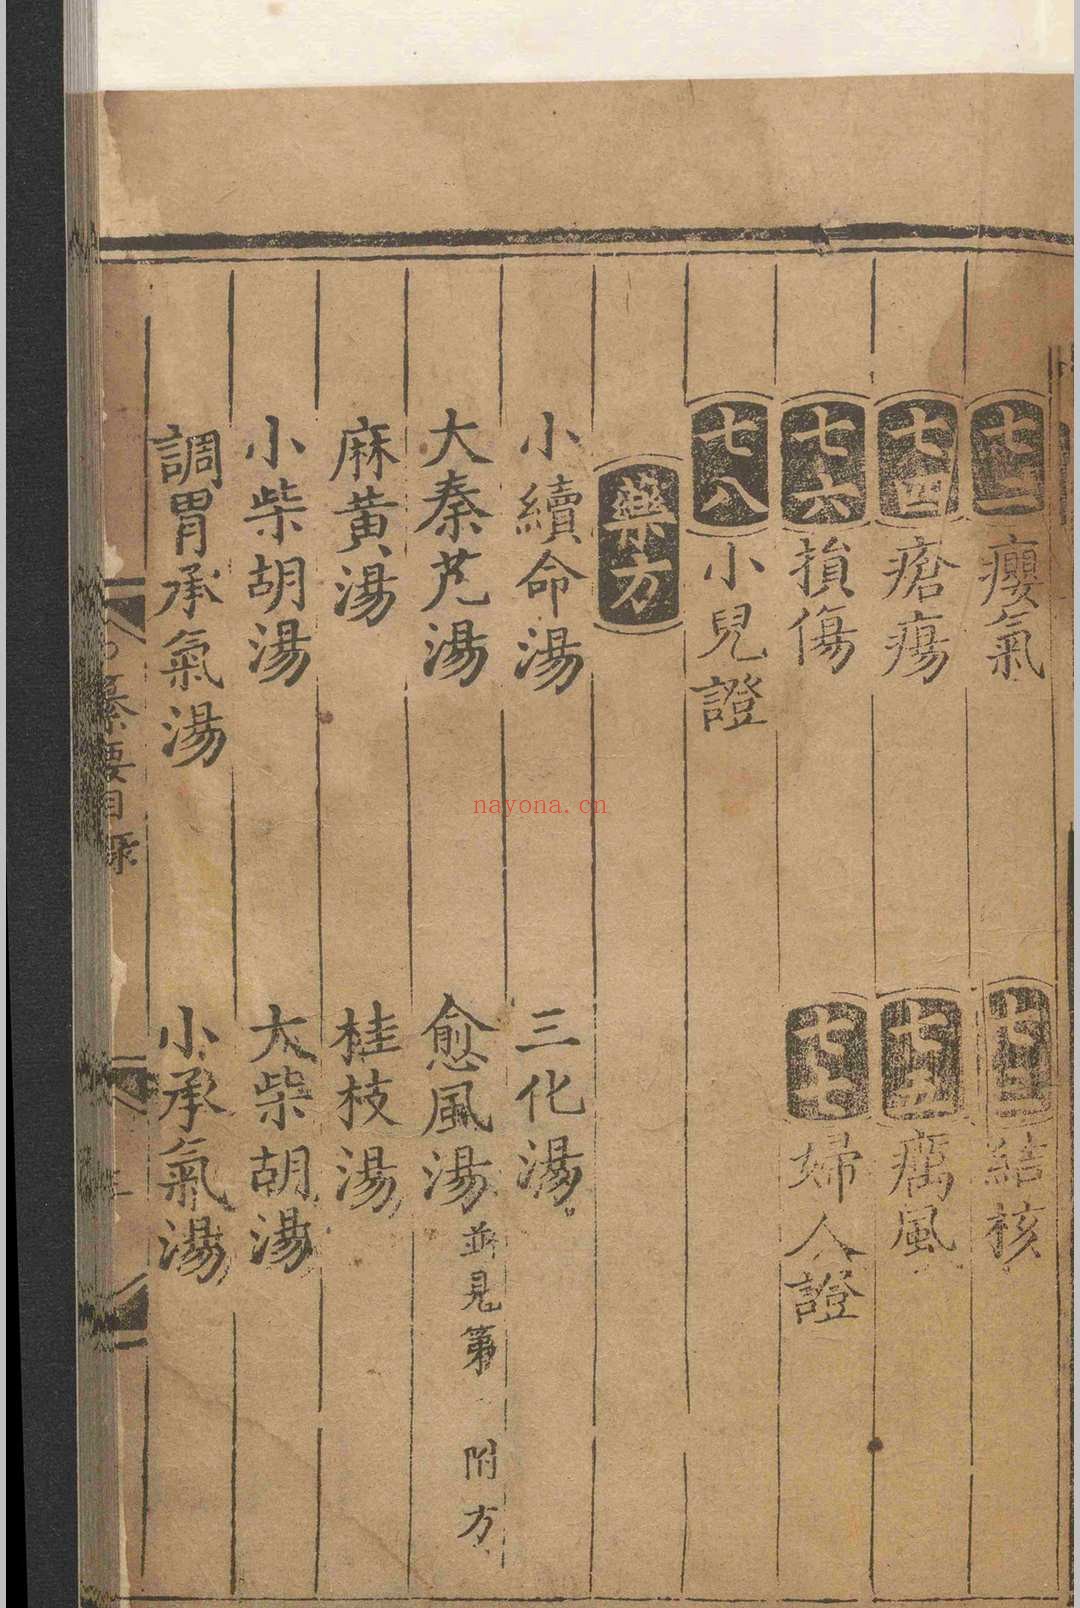 七二 癭氣 七三 結核
七四 瘡瘍 七五 癘風
七六 損傷 七七 婦人證
七八 小兒證
藥方
小續命湯 三化湯
大秦艽湯 愈風湯 並見第 附方
麻黃湯 桂枝湯
小柴胡湯 大柴胡湯
調胃承氣湯 小承氣湯
纂要目录
nayona.cn